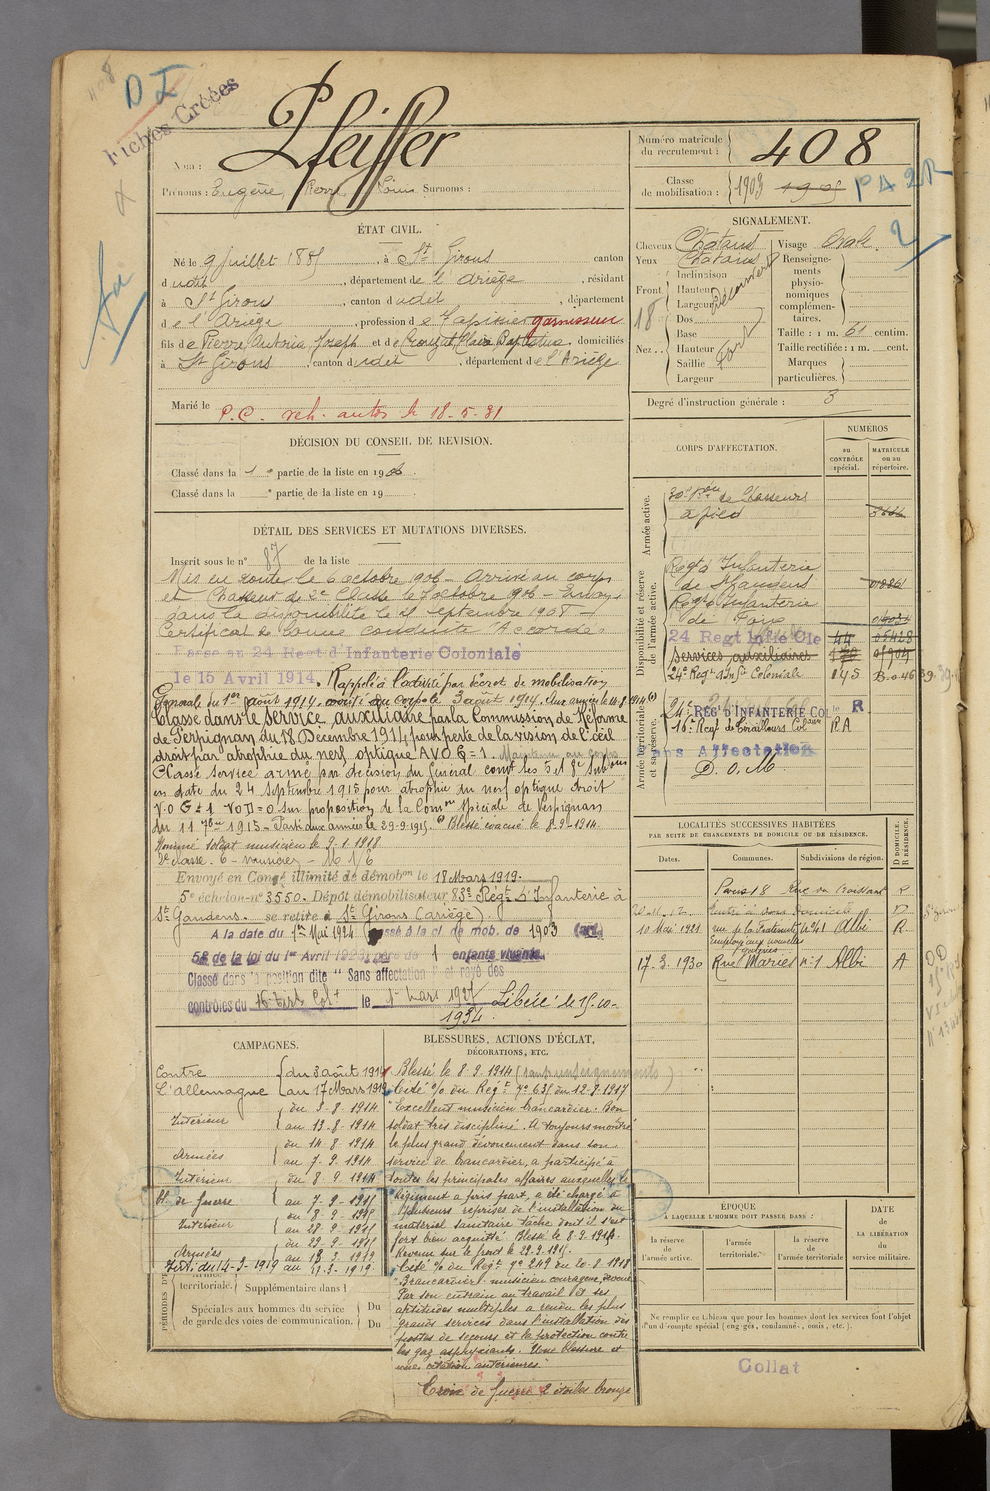 408
D I
Fiches Créées
Nom : Pfeiffer
Prénoms : Eugène, Pierre, Louis Surnoms :
Numéro matricule du recrutement : 408
Classe de mobilisation : 1903 1905
ÉTAT CIVIL.
Né le 9 juillet 1885, à St Girons canton
dudit, département de l'Ariège, résidant
à St Girons, canton dudit, département
de l'Ariège, profession de Tapissier garnisseur
fils de Pierre Antoine Joseph et de Claire Baptistine domiciliés
à St Girons, canton dudit, département de l'Ariège
Marié le
P.C. veh. autos le 18-5-31
SIGNALEMENT.
Cheveux Châtains
Yeux Châtains
Front Inclinaison
Hauteur découvert
Largeur
Nez Dos
Base
Hauteur fort
Saillie
Largeur
Visage Ovale.
Renseignements physionomiques complémentaires.
Taille : 1 m. 61 centim.
Taille rectifiée : 1 m. cent.
Marques particulières.
Degré d'instruction générale : 3
DÉCISION DU CONSEIL DE REVISION.
Classé dans la 1e partie de la liste en 1906.
Classé dans la e partie de la liste en 19
DÉTAIL DES SERVICES ET MUTATIONS DIVERSES.
Inscrit sous le n° 87 de la liste
Mis en route le 6 octobre 1906 - Arrivé au corps
et Chasseur de 2e Classe le 7 octobre 1906 - Envoyé
dans la disponibilité le 25 septembre 1908 -
Certificat de bonne conduite "Accordé"
Passé au 24 Regt d'Infanterie Coloniale
le 15 Avril 1914. Rappelé à l'activité par décret de mobilisation
Générale du 1er août 1914. arrivé au corps le 3 août 1914. Aux armées le 14-8-1914 (1)
Classé dans le service auxiliaire par la Commission de Réforme
de Perpignan du 18 Décembre 1914 pour perte de la vision de l'œil
droit par atrophie du nerf optique AVOG = 1. Maintenu au Corps
Classé service armé par décision du Général comt les 5 et 8e Subons
en date du 24 Septembre 1915 pour atrophie du nerf optique droit
V.O G = 1 VOD = 0 sur proposition de la Comon Spéciale de Perpignan
du 11 7bre 1915 - Parti aux armées le 29-9-1915. (1) Blessé évacué le 8-9-1914.
Nommé soldat musicien le 9-1-1918
Envoyé en Congé illimité de démobon le 18 Mars 1919.
5e échelon n° 3550. Dépôt démobilisateur 83e Régt d'Infanterie à
St Gaudens. se retire à St Girons (Ariège).
A la date du 1er Mai 1924 passé à la cl. de mob. de 1903 (art.
58 de la loi du 1er Avril 1923) père de 1 enfants vivants.
Classé dans la position dite " Sans affectation " et rayé des
contrôles du 16 Tirs Colx le 1er mars 1927 Libéré le 15-10-
1934.
CORPS D'AFFECTATION.
NUMÉROS
AU CONTRÔLE spécial.
MATRICULE ou au répertoire.
Armée active.
30e Bon de Chasseurs
à pied
Disponibilité et réserve de l'armée active.
Regt d'Infanterie
de St Gaudens
Regt d'Infanterie
de Foix
24 Regt Infie Cle 44 08428
Services auxiliaires
24e Regt d'Infie Coloniale 145
Armée territoriale et sa réserve.
24e REGt D'INFANTERIE Col R
16e Regt de Tirailleurs Colaux RA
Sans Affectation
D. O. M.
LOCALITÉS SUCCESSIVES HABITÉES
PAR SUITE DE CHANGEMENTS DE DOMICILE OU DE RÉSIDENCE.
Dates. Communes. Subdivisions de région. D DOMICILE. R RÉSIDENCE.
Paris 18 Rue du Poissant R
10 Mai 1921 rue de la Fraternité n° 1 Albi R
17.3.1930 Rue Mariès n° 1 Albi A
CAMPAGNES.
Contre du 3 août 1914
L'allemagne au 17 Mars 1919
Intérieur du 3-8-1914
au 13-8-1914
Armées du 14-8-1914
au 7-9-1914
Intérieur du 8-9-1914
Bl. de guerre au 7-9-1915
Intérieur du 8-9-1915
au 28-9-1915
Armées du 29-9-1915
au 13-3-1919
Intr du 14-3-1919 au 17-3-1919
territoriale.
Supplémentaire dans
Spéciales aux hommes du service de garde des voies de communication.
Du
Du
BLESSURES, ACTIONS D'ÉCLAT,
DÉCORATIONS, ETC.
Blessé le 8.9.1914 (sans renseignements)
Cité O/ du Régt n° 63 du 12-8-1917
"Excellent musicien brancardier. Bon
soldat très discipliné. A toujours montré
le plus grand dévouement dans son
service de brancardier, a participé à
toutes les principales affaires auxquelles le
Régiment a pris part, a été chargé à
plusieurs reprises de l'installation du
matériel sanitaire tâche dont il s'est
fort bien acquitté. Blessé le 8.9.1914.
Revenu sur le front le 29.9.1915.
Cité O/ du Régt n° 249 du 20-8-1918
"Brancardier musicien courageux, dévoué
Par son entrain au travail et ses
aptitudes multiples a rendu les plus
grands services dans l'installation des
postes de secours et la protection contre
les gaz asphyxiants. Une blessure et
une citation antérieures."
Croix de guerre 2 étoiles bronze
ÉPOQUE
A LAQUELLE L'HOMME DOIT PASSER DANS :
la réserve de l'armée active.
l'armée territoriale.
la réserve de l'armée territoriale
DATE de LA LIBÉRATION du service militaire.
Ne remplir ce tableau que pour les hommes dont les services font l'objet
d'un décompte spécial (engagés, condamnés, omis, etc.).
Collat